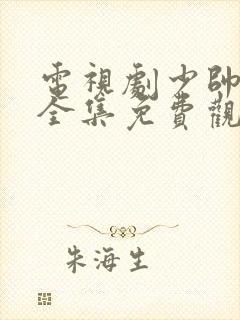 電視劇少帥
全集免費觀
朱海生